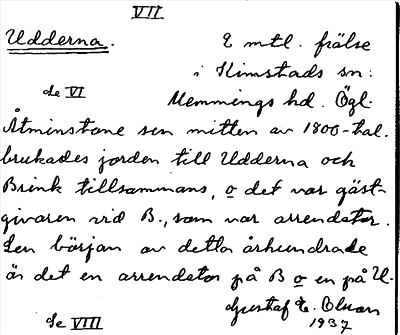 VII
Udderna.
2 mtl. frälse
i Kimstads sn:
Se VI
Memmings hd. Ögl.
Åtminstone sen mitten av 1800-tal.
brukades jorden till Udderna och
Brink tillsammans, o det var gäst-
givaren vid B., som var arrendator.
Sen början av detta århundrade
är det en arrendator på B o en på U.
Gustaf E.
1937
Se VIII